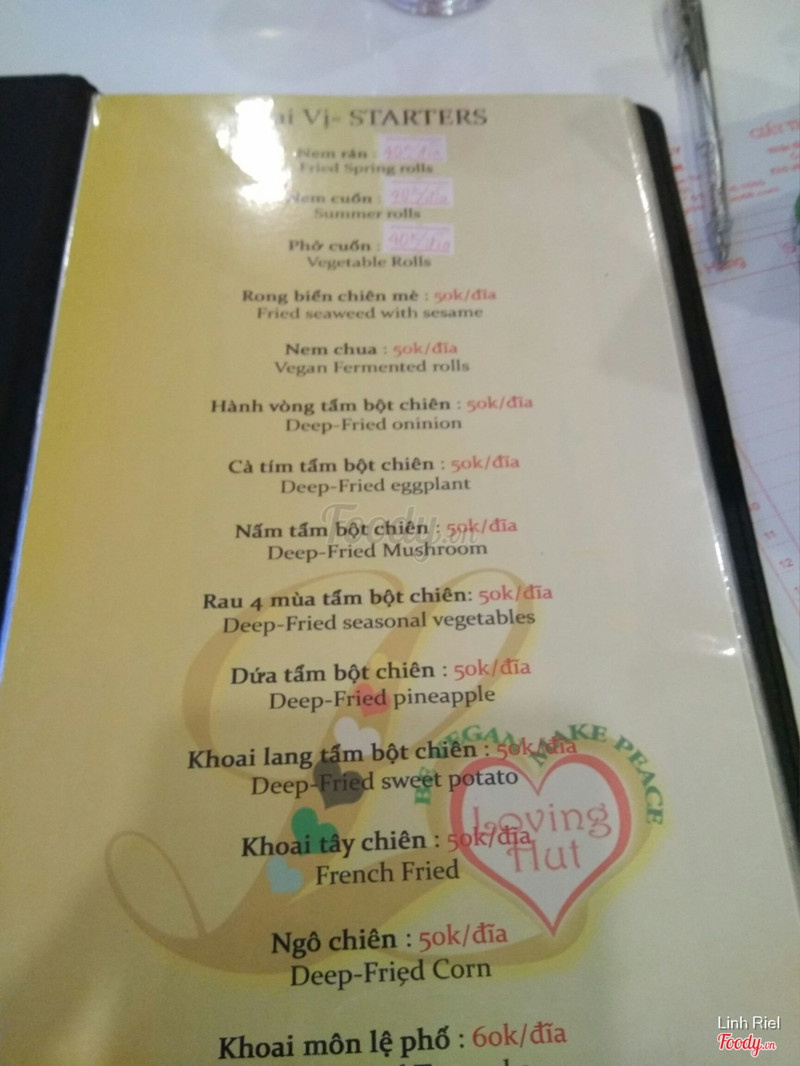 Vị- STARTERS
Nem rán :
Fried Spring rolls
Nem cuốn :
Summer rolls
Phở cuốn :
Vegetable Rolls
Rong biển chiên mè : 50k/đĩa
Fried seaweed with sesame
Nem chua : 50k/đĩa
Vegan Fermented rolls
Hành vòng tẩm bột chiên : 50k/đĩa
Deep-Fried oninion
Cà tím tẩm bột chiên : 50k/đĩa
Deep-Fried eggplant
Nấm tẩm bột chiên : 50k/đĩa
Deep-Fried Mushroom
Rau 4 mùa tẩm bột chiên: 50k/đĩa
Deep-Fried seasonal vegetables
Dứa tẩm bột chiên : 50k/đĩa
Deep-Fried pineapple
Khoai lang tẩm bột chiên : 50k/đĩa
Deep-Fried sweet potato
BE VEGAN MAKE PEACE
Loving
Hut
Khoai tây chiên : 50k/đĩa
French Fried
Ngô chiên : 50k/đĩa
Deep-Fried Corn
Khoai môn lệ phố : 60k/đĩa
Foody.vn
Linh Riel
Foody.vn
11
12